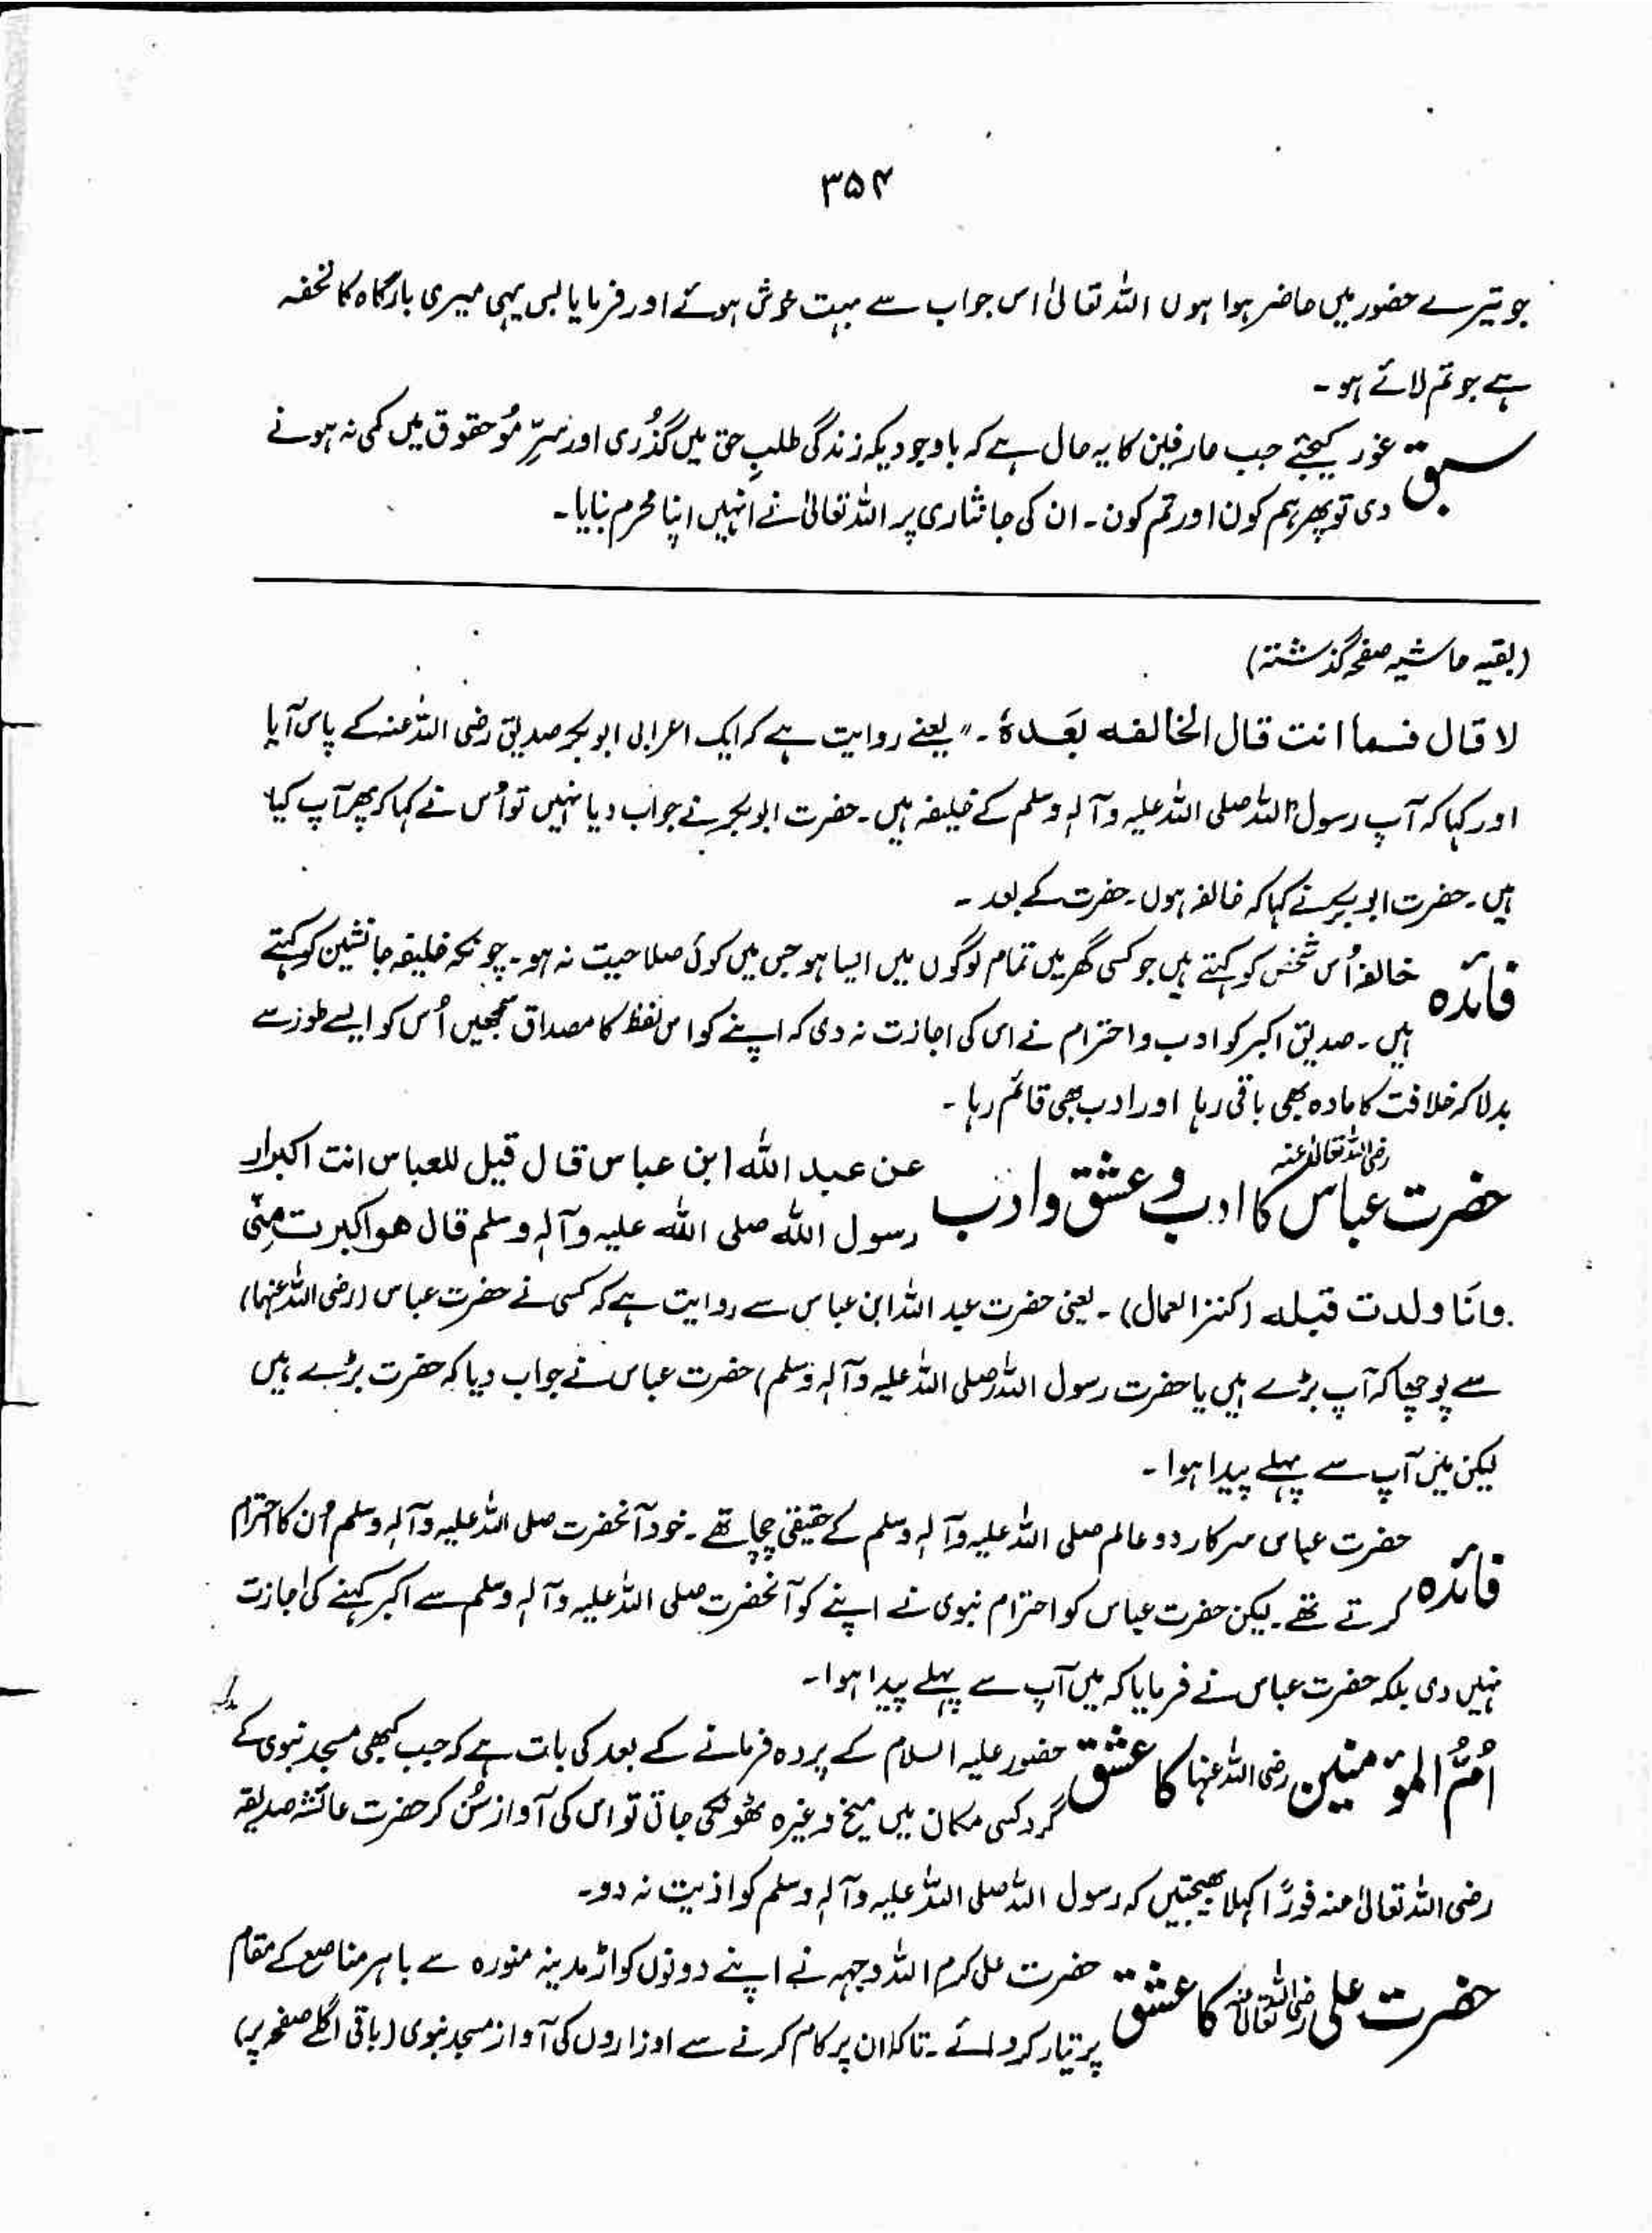 ۳۵۴
جو تیرے حضور میں حاضر ہوا ہوں اللہ تعالیٰ اس جواب سے بہت خوش ہوئے اور فرمایا بس یہی میری بارگاہ کا تحفہ
ہے جو تم لائے ہو۔
سبق غور کیجئے جب عارفین کا یہ حال ہے کہ باوجودیکہ زندگی طلبِ حق میں گذُری اور سَرِّ مُو حقوق میں کمی نہ ہونے
دی تو پھر ہم کون اور تم کون۔ ان کی جانثاری پر اللہ تعالیٰ نے انہیں اپنا محرم بنایا۔
(بقیہ حاشیہ صفحہ گذشتہ)
لا قال فما انت قال الخالفه بعدهٗ۔" یعنے روایت ہے کہ ایک اعرابی ابوبکر صدیق رضی اللہ عنہ کے پاس آیا
اور کہا کہ آپ رسول اللہ صلی اللہ علیہ وآلہٖ وسلم کے خلیفہ ہیں۔ حضرت ابوبکر نے جواب دیا نہیں تو اُس نے کہا کہ پھر آپ کیا
ہیں۔ حضرت ابوبکر نے کہا کہ خالفہ ہوں۔ حضرت کے بعد ۔
فائدہ خالفہ اُس شخص کو کہتے ہیں جو کسی گھر میں تمام لوگوں میں ایسا ہو جس میں کوئی صلاحیت نہ ہو۔ چونکہ خلیفہ جانشین کو کہتے
ہیں۔ صدیق اکبر کو ادب و احترام نے اس کی اجازت نہ دی کہ اپنے کو اس لفظ کا مصداق سمجھیں اُس کو ایسے طور سے
بدلا کہ خلافت کا مادہ بھی باقی رہا اور ادب بھی قائم رہا ۔
حضرت عباس رضی اللہ تعالیٰ عنہ کا ادب و عشق و ادب عن عبد الله ابن عباس قال قيل للعباس انت اكبر او
رسول الله صلى الله علیہ وآلہٖ وسلم قال هو اكبر منّی
وانا ولدت قبله (کنز العمال)۔ یعنی حضرت عبد اللہ ابن عباس سے روایت ہے کہ کسی نے حضرت عباس (رضی اللہ عنہما)
سے پوچھا کہ آپ بڑے ہیں یا حضرت رسول اللہ صلی اللہ علیہ وآلہٖ وسلم) حضرت عباس نے جواب دیا کہ حضرت بڑے ہیں
لیکن میں آپ سے پہلے پیدا ہوا۔
فائدہ حضرت عباس سرکار دو عالم صلی اللہ علیہ وآلہٖ وسلم کے حقیقی چچا تھے۔ خود آنحضرت صلی اللہ علیہ وآلہٖ وسلم اُن کا احترام
کرتے تھے۔ لیکن حضرت عباس کو احترام نبوی نے اپنے کو آنحضرت صلی اللہ علیہ وآلہٖ وسلم سے اکبر کہنے کی اجازت
نہیں دی بلکہ حضرت عباس نے فرمایا کہ میں آپ سے پہلے پیدا ہوا۔
اُمُّ المؤمنین رضی اللہ عنہا کا عشق حضور علیہ السلام کے پردہ فرمانے کے بعد کی بات ہے کہ جب کبھی مسجد نبوی کے
گرد کسی مکان میں میخ وغیرہ ٹھونکی جاتی تو اس کی آواز سُن کر حضرت عائشہ صدیقہ
رضی اللہ تعالیٰ عنہ فوراً کہلا بھیجتیں کہ رسول اللہ صلی اللہ علیہ وآلہٖ وسلم کو اذیت نہ دو۔
حضرت علی رضی اللہ تعالیٰ عنہ کا عشق حضرت علی کرم اللہ وجہہ نے اپنے دونوں کواڑ مدینہ منورہ سے باہر مناصع کے مقام
پر تیار کروائے۔ تاکہ ان پر کام کرنے سے اوزاروں کی آواز مسجد نبوی (باقی اگلے صفحہ پر)